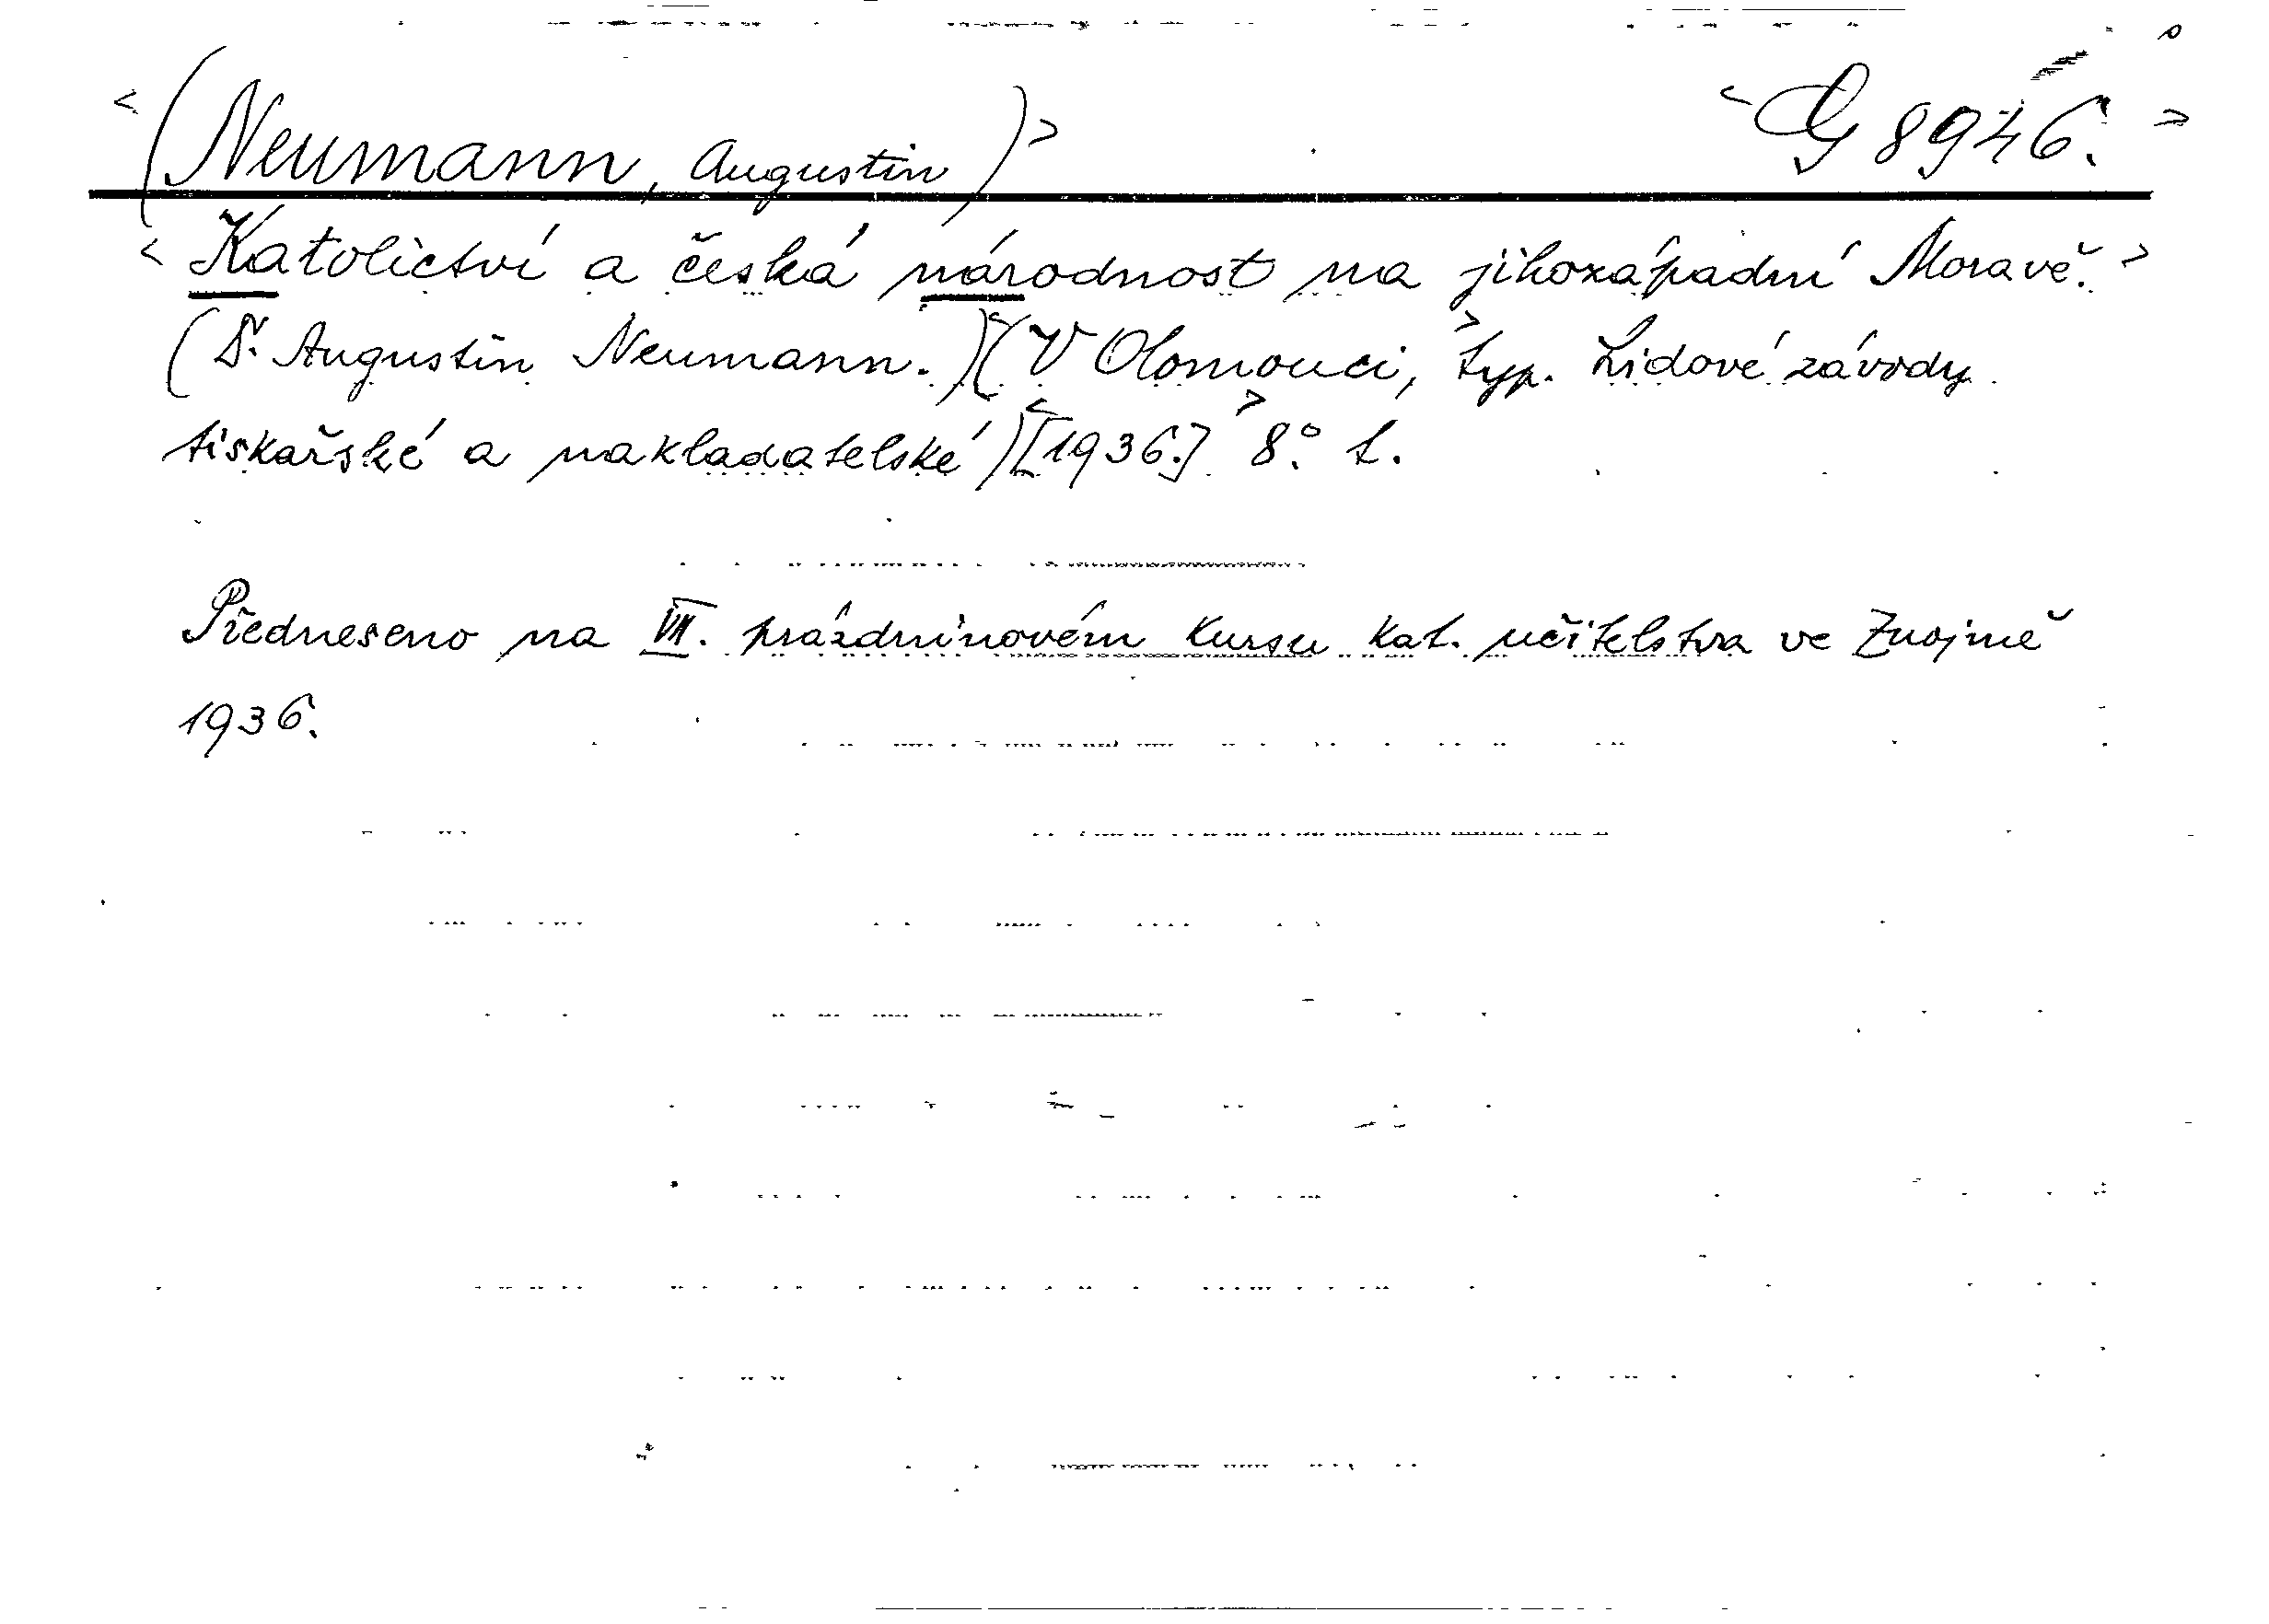 <(Neumann, Augustin)> <G 8946.>
<Katolictví a česká národnost na jihozápadní Moravě.>
(Dr. Augustin Neumann.)(<V Olomouci,> typ. Lidové závody
tiskařské a nakladatelské)<[1936.]> 8°. L.
Předneseno na VII. prázdninovém kursu kat. učitelstva ve Znojmě
1936.